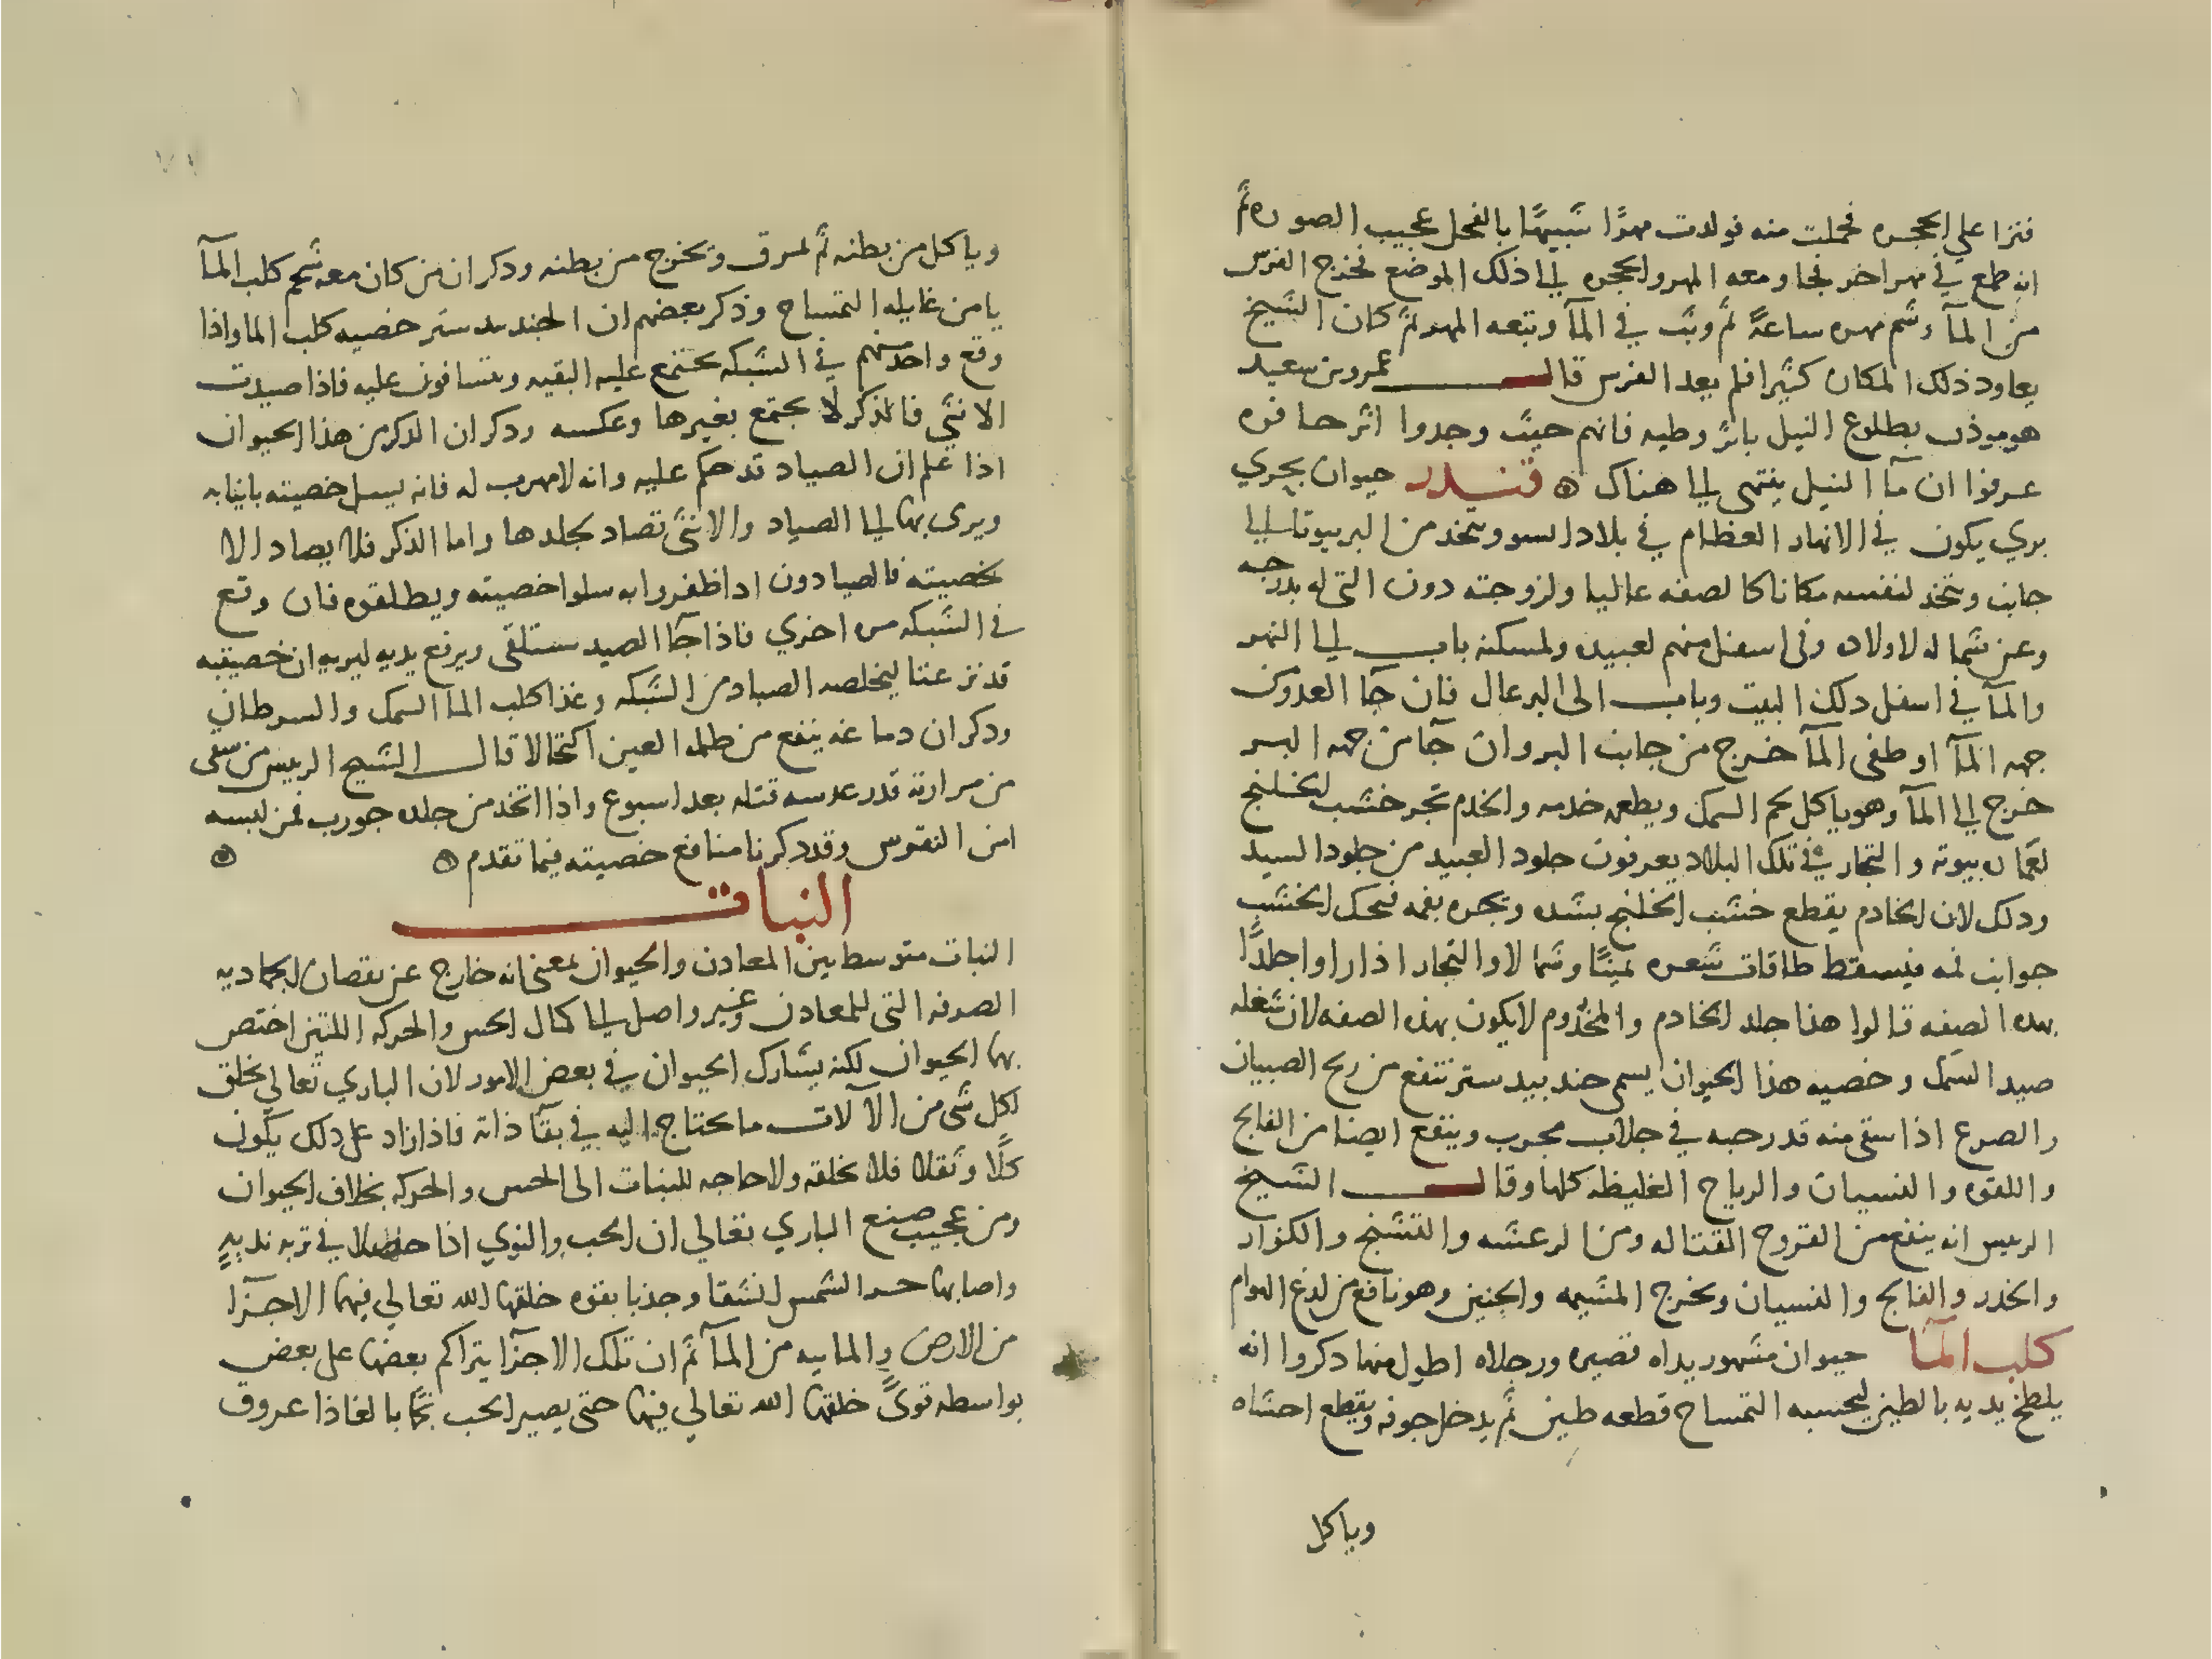 فنزا علي الحجره فحملت منه فولدت مهرًا شبيهًا بالفحل عجيب الصوره ثم
انه طمع في مهر اخر فجا ومعه المهر والحجره الي ذلك الموضع فخرج الفرس
من المآ وشم مهره ساعةً ثم وثب في المآ وتبعه المهر ثم كان الشيخ
يعاود ذلك المكان كثيرا فلم يعد الفرس قال عمرو بن سعيد
هو يوذن بطلوع النيل باثر وطيه فانهم حيث وجدوا اثر حافره
عرفوا ان مآ النيل ينتهي الي هناك ه قندر حيوان بحري
بري يكون في الانهار العظام في بلاد السو ويتخذ من البر بيوتا الي
جانب ويتخد لنفسه مكانا كالصفه عاليا ولزوجته دون التي له بدرجه
وعن شماله لاولاده وفي اسفل منهم لعبيده ولمسكنه باب الي النهر
والمآ في اسفل دلك البيت وباب الي البر عال فان جآ العدو من
جهه المآ او طغي المآ خرج من جانب البر وان جآ من جهه البر
خرج الي المآ وهو ياكل لحم السمك ويطعم خدمه والخدم تجر خشب الخلنج
لعمان بيوته والتجار في تلك البلاد يعرفون جلود العبيد من جلود السيد
ودلك لان الخادم يقطع خشب الخلنج بسنه ويجره بفمه فيحك الخشب
جوانب فمه فيسقط طاقات شعره يمينًا وشمالا والتجار اذا راوا جلدًا
بهده الصفه قالوا هذا جلد الخادم والمخدوم لا يكون بهذه الصفه لان شغله
صيد السمك وخصيه هذا الحيوان يسمي جند بيدستر تنفع من ريح الصبيان
والصرع اذا سقي منه قدر حبه في جلاب مجرب وينفع ايضا من الفالج
واللقوه والنسيان والرياح الغليظه كلها وقال الشيخ
الرييس انه ينفع من القروح القتاله ومن الرعشه والتشنج والكزاز
والخدر والفالج والنسيان ويخرج المشيمه والجنين وهو نافع من لدغ الهوام
كلب المآ حيوان مشهور يداه قصيره ورجلاه اطول منها دكروا انه
يلطخ يديه بالطين ليحسبه التمساح قطعه طين ثم يدخل جوفه ويقطع احشاه
وياكل
وياكل من بطنه ثم لمرق ويخرج من بطنه ودكر ان من كان معه شحم كلب المآ
يامن غايله التمساح وذكر بعضهم ان الجند بيدستر خصيه كلب الما واذا
وقع واحد منهم في الشبكه يجتمع عليه البقيه ويتسافون عليه فاذا صيدت
الانثي فالذكر لا يجتمع بغيرها وعكسه ودكر ان الدكر من هذا الحيوان
اذا علم ان الصياد قد حكم عليه وانه لا مهرب له فانه يسل خصيته بانيابه
ويرمي بها الي الصياد والانثي تصاد بجلدها واما الذكر فلا يصاد الا
بخصيته فالصيادون ادا ظفروا به سلوا خصيته ويطلقوه فان وقع
في الشبكه مره اخري فاذا جآ الصيد ستلقي ويرفع يديه ليريه ان خصيتيه
قد نزعتا ليخلصه الصياد من الشبكه وغذا كلب المآ السمك والسرطان
ودكر ان دماغه ينفع من ظلمه العين اكتحالا قال الشيخ الرييس من سقي
من مرارته قدر عدسه قتله بعد اسبوع واذا اتخد من جلده جورب فمن لبسه
امن النقرس وقد دكرنا منافع خصيته فيما تقدم ه ه
النبات
النبات متوسط بين المعادن والحيوان بمعني انه خارج عن نقصان الجماديه
الصرفه التي للمعادن وغير واصل الي كمال الحس والحركه اللتين اختص
بها الحيوان لكنه يشارك الحيوان في بعض الامور لان الباري تعالي يخلق
لكل شي من الآلات ما يحتاج اليه في بقآ ذاته فاذا زاد علي دلك يكون
كلًا وثقلا فلا يخلقه ولا حاجه للنبات الي الحس والحركه بخلاف الحيوان
ومن عجيب صنع الباري تعالي ان الحب والنوي اذا حصلا في تربه نديه
واصابها حر الشمس انشقا وجذبا بقوه خلقها الله تعالي فيهما الاجزآ
من الارض والماييه من المآ ثم ان تلك الاجزآ يتراكم بعضها علي بعض
بواسطه قويً خلقها الله تعالي فيها حتي يصير الحب نجما بالغا ذا عروق